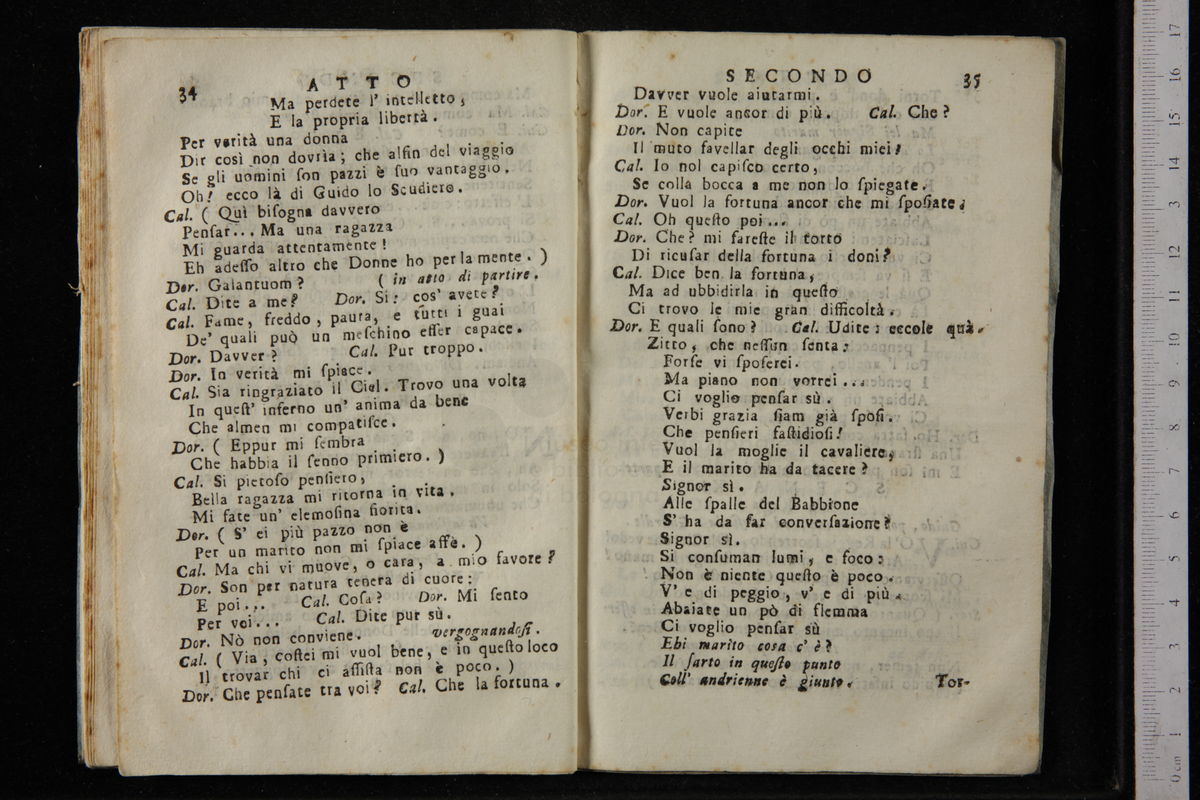 34
ATTO
Ma perdete l' intelletto,
E la propria libertà.
Per verità una donna
Dir così non dovria; che alfin del viaggio
Se gli uomini ſon pazzi è ſuo vantaggio.
Oh! ecco là di Guido lo Scudiero.
Cal. ( Quì biſogna davvero
Penſar... Ma una ragazza
Mi guarda attentamente!
Eh adeſſo altro che Donne ho per la mente. )
Dor. Galantuom? ( in atto di partire.
Cal. Dite a me? Dor. Si: cos' avete?
Cal. Fame, freddo, paura, e tutti i guai
De' quali può un meſchino eſſer capace.
Dor. Davver? Cal. Pur troppo.
Dor. In verità mi ſpiace.
Cal. Sia ringraziato il Ciel. Trovo una volta
In queſt' inferno un' anima da bene
Che almen mi compatiſce.
Dor. ( Eppur mi ſembra
Che habbia il ſenno primiero. )
Cal. Si pietoſo penſiero,
Bella ragazza mi ritorna in vita.
Mi fate un' elemoſina fiorita.
Dor. ( S' ei più pazzo non è
Per un marito non mi ſpiace affè. )
Cal. Ma chi vi muove, o cara, a mio favore?
Dor. Son per natura tenera di cuore:
E poi... Cal. Coſa? Dor. Mi ſento
Per voi... Cal. Dite pur sù.
Dor. Nò non conviene. vergognandoſi.
Cal. ( Via, coſtei mi vuol bene, e in queſto loco
Il trovar chi ci aſſiſta non è poco. )
Dor. Che penſate tra voi? Cal. Che la fortuna.
SECONDO
35
Davver vuole aiutarmi.
Dor. E vuole ancor di più. Cal. Che?
Dor. Non capite
Il muto favellar degli occhi miei!
Cal. Io nol capiſco certo,
Se colla bocca a me non lo ſpiegate.
Dor. Vuol la fortuna ancor che mi ſpoſiate.
Cal. Oh queſto poi...
Dor. Che? mi fareſte il torto
Di ricuſar della fortuna i doni?
Cal. Dice ben la fortuna,
Ma ad ubbidirla in queſto
Ci trovo le mie gran difficoltà.
Dor. E quali ſono? Cal. Udite: eccole quà.
Zitto, che neſſun ſenta:
Forſe vi ſpoſerei.
Ma piano non vorrei...
Ci voglio penſar sù.
Verbi grazia ſiam già ſpoſi.
Che penſieri faſtidioſi!
Vuol la moglie il cavaliere,
E il marito ha da tacere?
Signor sì.
Alle ſpalle del Babbione
S' ha da far converſazione?
Signor sì.
Si conſuman lumi, e foco:
Non è niente queſto è poco.
V' e di peggio, v' e di più.
Abaiate un pò di flemma
Ci voglio penſar sù
Ehi marito coſa c' è?
Il ſarto in queſto punto
Coll' andrienne è giunto.
Tor-